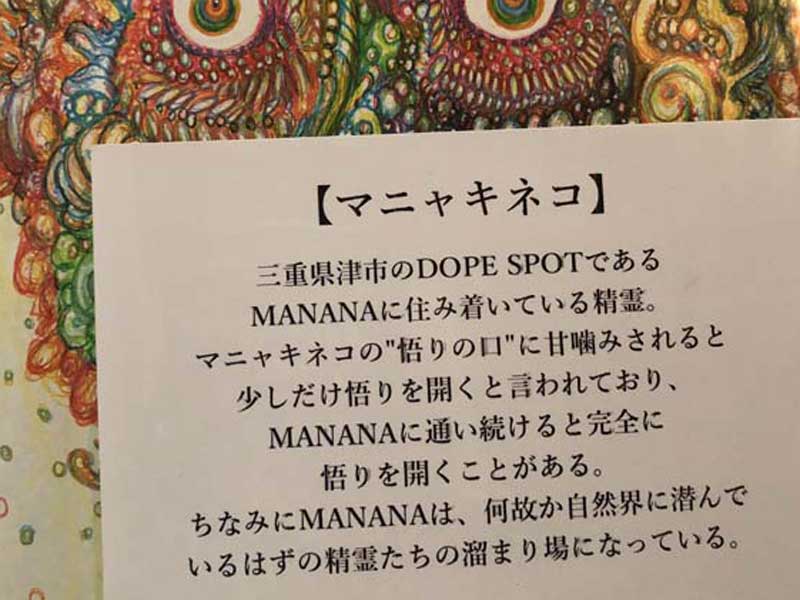 【マニャキネコ】
三重県津市のDOPE SPOTである
MANANAに住み着いている精霊。
マニャキネコの"悟りの口"に甘噛みされると
少しだけ悟りを開くと言われており、
MANANAに通い続けると完全に
悟りを開くことがある。
ちなみにMANANAは、何故か自然界に潜んで
いるはずの精霊たちの溜まり場になっている。